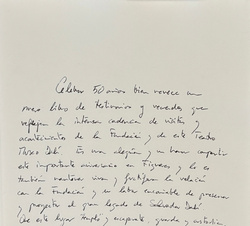 Celebrar 50 años bien merece un
nuevo libro de testimonios y recuerdos que
reflejen la intensa cadencia de visitas y
acontecimientos de la Fundació y de este Teatro
Museo Dalí. Es una alegría y un honor compartir
este importante aniversario en Figueres y lo es
también mantener viva y fructífera la relación
con la Fundació y su labor encomiable de preservar
y proyectar el gran legado de Salvador Dalí
Que este lugar, templo y escaparate, guarda y custodia